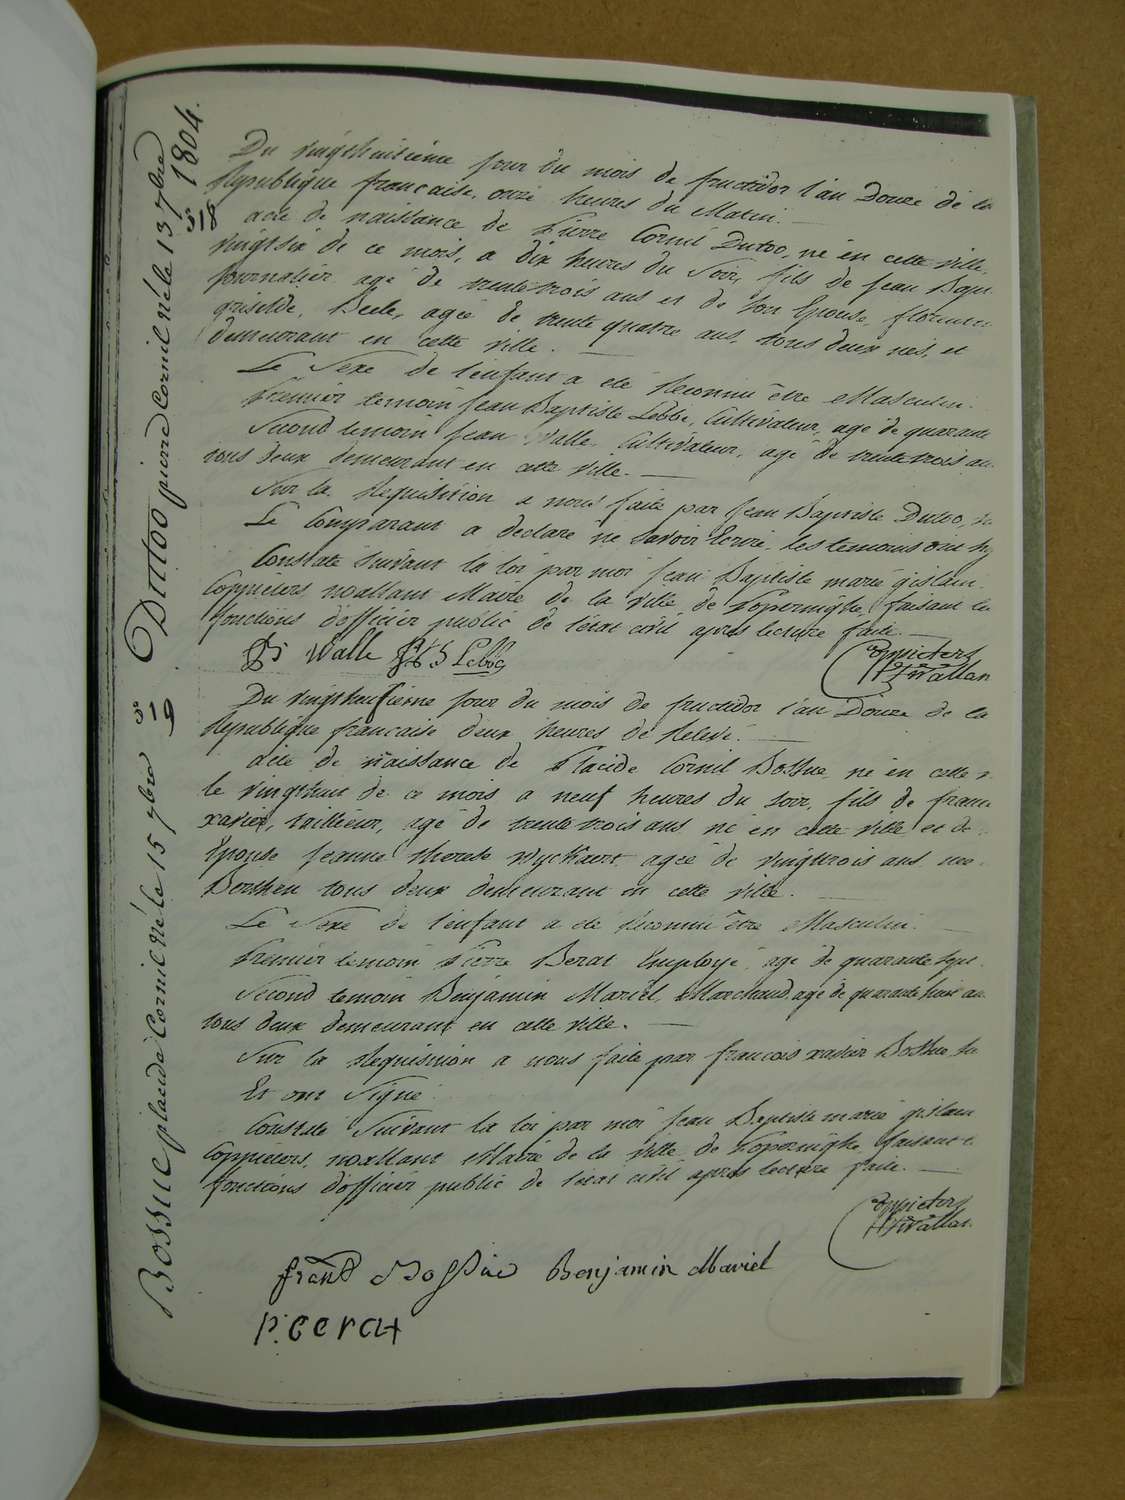 1804.
318
Duttoo pierre Cornil Né le 13 7bre
Du vingthuitieme jour du mois de fructidor l'an Douze de la
Republique francaise, onze heures du Matin.
acte de naissance de Pierre Cornil Dutoo, né en cette ville,
vingtsix de ce mois, a dix heures du Soir, fils de Jean Bapt
journalier agé de trentetrois ans et de Son Epouse florentin
griselde, Beele, agée de trente quatre ans, tous deux nés, et
demeurant en cette ville.
Le Sexe de l'enfant a eté Reconnu être Masculin.
Premier temoin Jean Baptiste Lebbe, Cultivateur, agé de quarante
Second temoin Jean Walle, Cultivateur, agé de trentetrois an
tous deux demeurant en cette ville.
Sur la Requisition a nous faite par Jean Baptiste Dutoo,
Le Comparant a declaré ne savoir Ecrire, les temoins ont
Constaté Suivant la loi par moi Jean Baptiste marie gislain
Coppieters wallant Maire de la ville de Poperinghe faisant les
fonctions d'officier public de l'etat civil apres lecture faite.
Walle Lebbe
Coppieters
Wallan
319
Bossue placide Cornil Né le 15 7bre
Du vingthuitieme jour du mois de fructidor l'an Douze de la
Republique francaise deux heures de Relevé.
acte de naissance de Placide Cornil Bossue, né en cette v
le vingthuit de ce mois a neuf heures du soir, fils de franc
xavier, tailleur, agé de trentetrois ans né en cette ville et de
Epouse Jeanne therese Wyckaert agée de vingttrois ans nee
Berthen tous deux demeurant en cette ville.
Le Sexe de l'enfant a eté Reconnu être Masculin.
Premier temoin Pierre Berat Employé, agé de quarante sept
Second temoin Benjamin Mariel, Marchand, agé de quarante huit an
tous deux demeurant en cette ville.
Sur la Requisition a nous faite par francois xavier Bossue
Et ont Signé.
Constaté Suivant la loi par moi Jean Baptiste marie gislain
Coppieters, wallant Maire de la ville de Poperinghe faisant
fonctions d'officier public de l'etat civil apres lecture faite.
Coppieters
Wallan
Bossue Benjamin Mariel
P. Berat